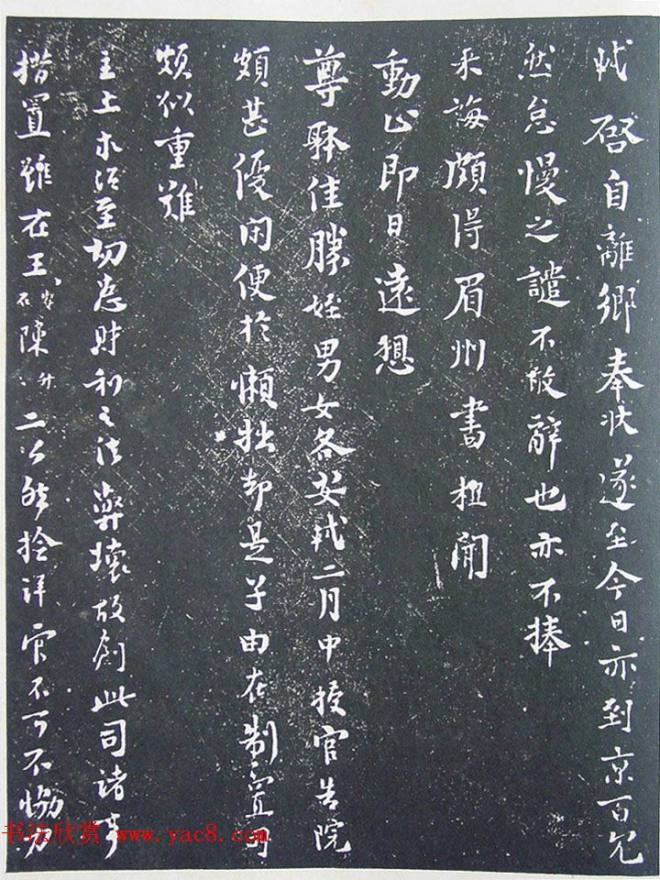 軾啓自離鄉奉狀遂至今日亦到京百冗
然怠慢之譴不敢辭也亦不捧
來誨頗得眉州書粗聞
動止即日遠想
尊躰佳勝姪男女各安軾二月中授官告院
頗甚優閑便於懶拙却是子由在制置司
頗似重難
主上求治至切患財利之法弊壞故創此司諸事
措置雖在王安石陳升之二公然撿詳官不可不協力
书法欣赏 www.yac8.com